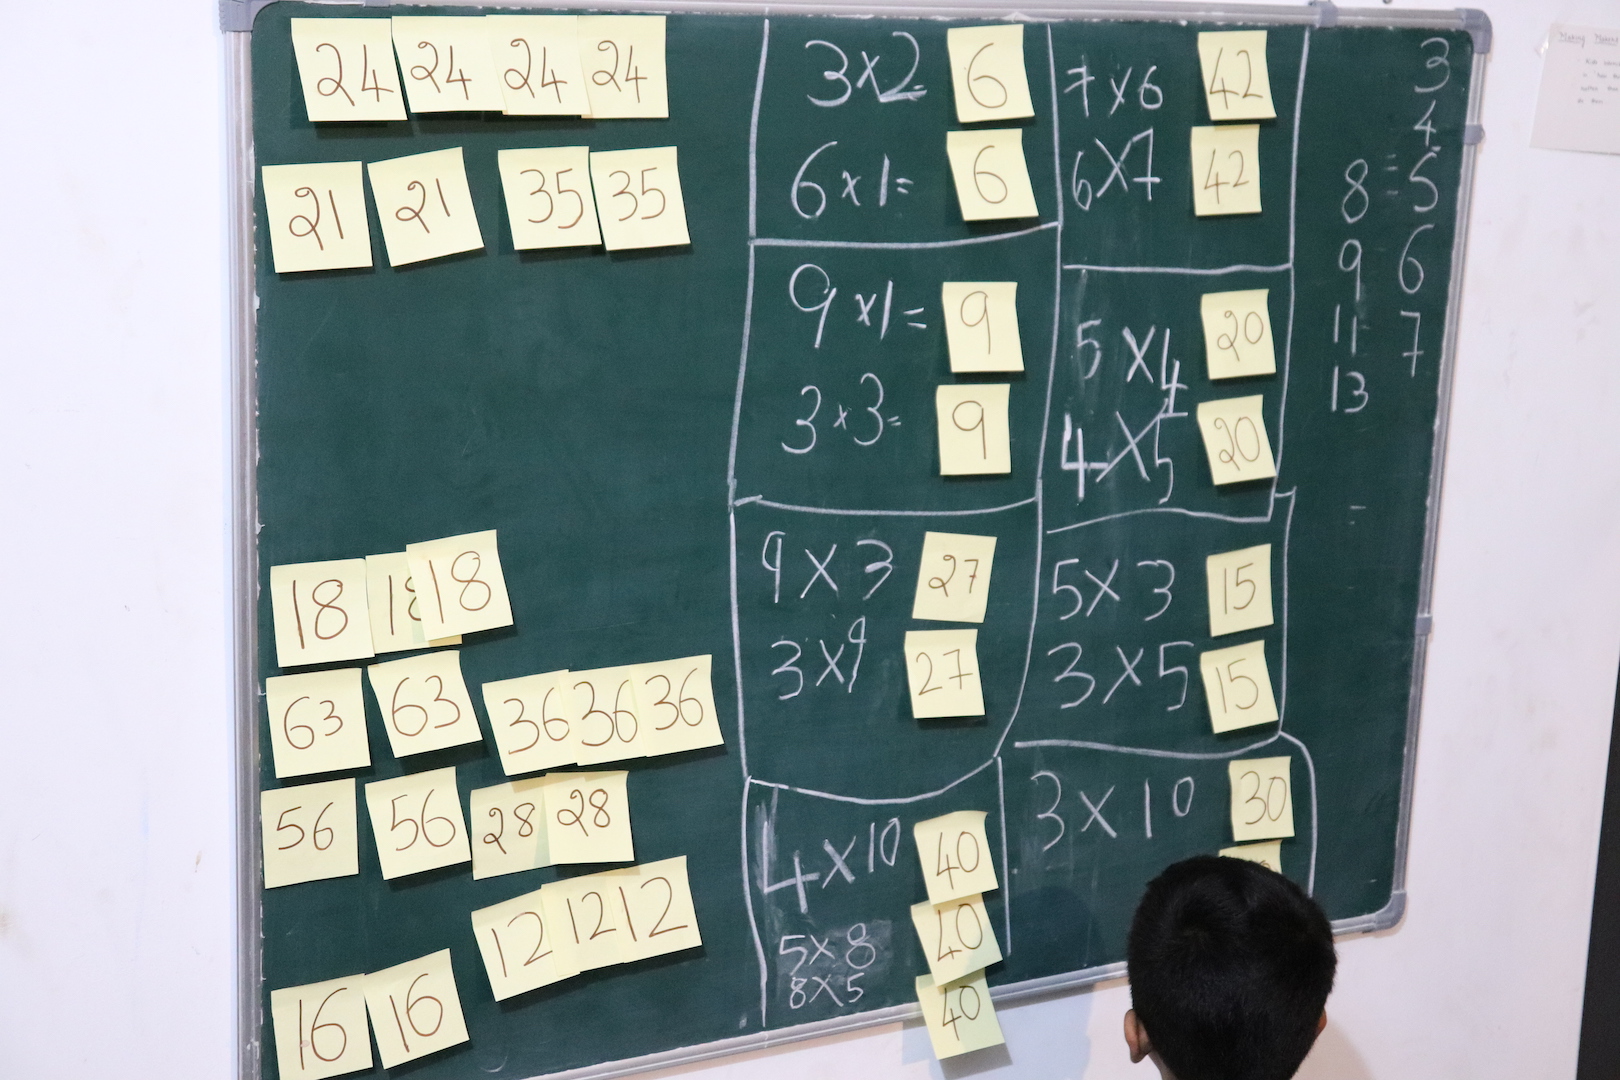 24 24 24 24
21 21 35 35
18 18 18
63 63 36 36 36
56 56 28 28
12 12 12
16 16
3×2 6
6×1= 6
9×1= 9
3×3= 9
9×3 27
3×9 27
4×10 40
5×8 40
8×5 40
7×6 42
6×7 42
5×4 20
4×5 20
5×3 15
3×5 15
3×10 30
3
4
8 5
9 6
11 7
13